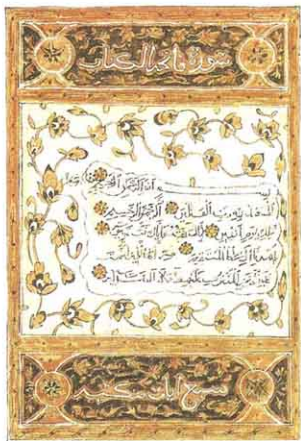 سورة فاتحة الكتاب
بسم الله الرحمن الرحيم الحمد
لله رب العالمين الرحمن الرحيم
ملك يوم الدين إياك نعبد وإياك نستعين
اهدنا الصراط المستقيم صراط الذين أنعمت عليهم
غير المغضوب عليهم ولا الضالين
سبع آيات مكية